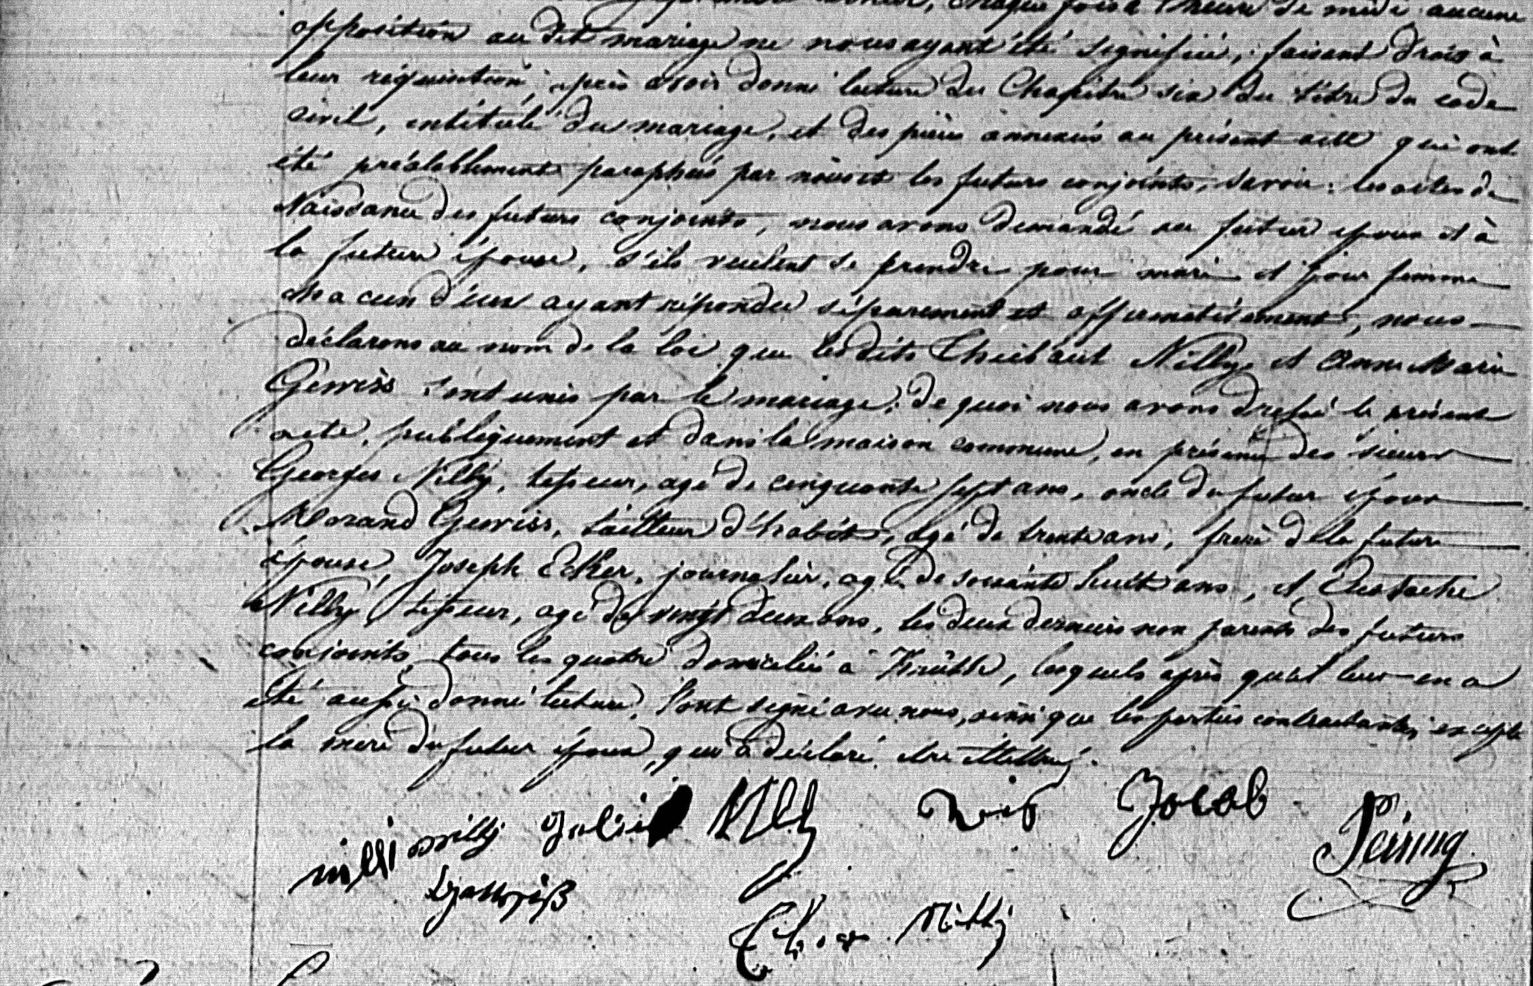 chaque fois à l'heure de midi aucune
opposition au dit mariage ne nous ayant été signifiée, faisant droit à
leur réquisition, après avoir donné lecture du Chapitre six du titre du code
civil, intitulé du mariage, et des pièces annexées au présent acte qui ont
été préalablement paraphées par nous et les futurs conjoints, savoir: les actes de
Naissance des futurs conjoints, nous avons demandé au futur époux et à
la future épouse, s'ils veulent se prendre pour mari et pour femme
chacun d'eux ayant répondu séparement et affirmativement, nous
déclarons au nom de la loi que les dits Thiébaut Nilly et Anne Marie
Gewiss sont unis par le mariage; de quoi nous avons dressé le présent
acte, publiquement et dans la maison commune, en présence des sieurs
Georges Nilly, tisseur, agé de cinquante sept ans, oncle du futur époux
Morand Gewiss, tailleur d'habits, agé de trente ans, frère de la future
épouse, Joseph Ecker, journalier, agé de soixante huit ans, et Eustache
Nilly, tisseur, agé de vingt deux ans, les deux derniers non parents des futurs
conjoints, tous les quatre domiciliés à Krüth, lesquels après qu'il leur en a
été aussi donné lecture, l'ont signé avec nous, ainsi que les parties contractantes, excepté
la mère du futur époux, qui a déclaré être illettrée.
nilli nilly Nilly Jocob
Nilly